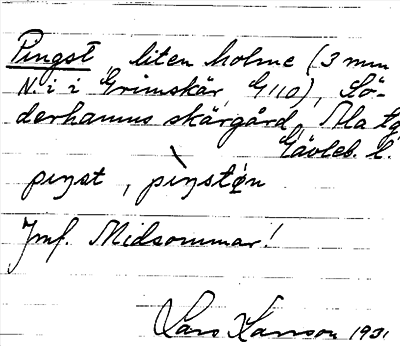 Pingst, liten holme (3 mm
N. i i Grimskär, G110), Sö-
derhamns skärgård, Ala tg
Gävleb. l.
piŋst, piŋstøn
Jmf. Midsommar!
Lars Hanson 1931